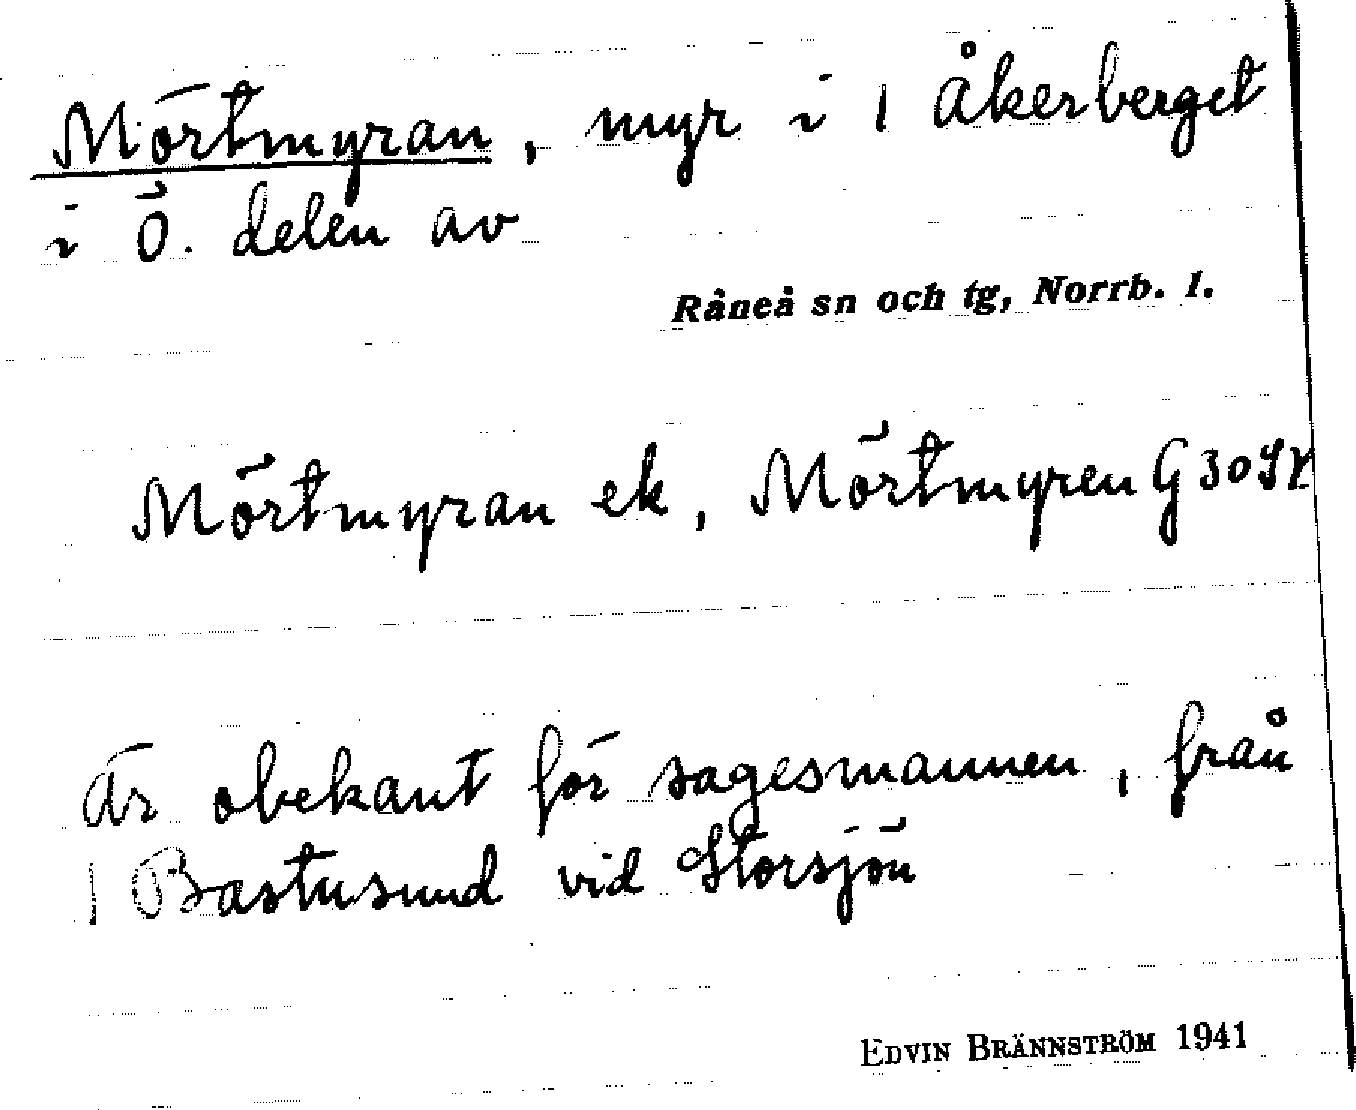 Mörtmyran, myr i 1 Åkerberget
i Ö. delen av
Råneå sn och tg, Norrb. l.
Mörtmyran ek, Mörtmyren G 30 SV
är obekant för sagesmannen, från
1 Bastusund vid Storsjön
EDVIN BRÄNNSTRÖM 1941